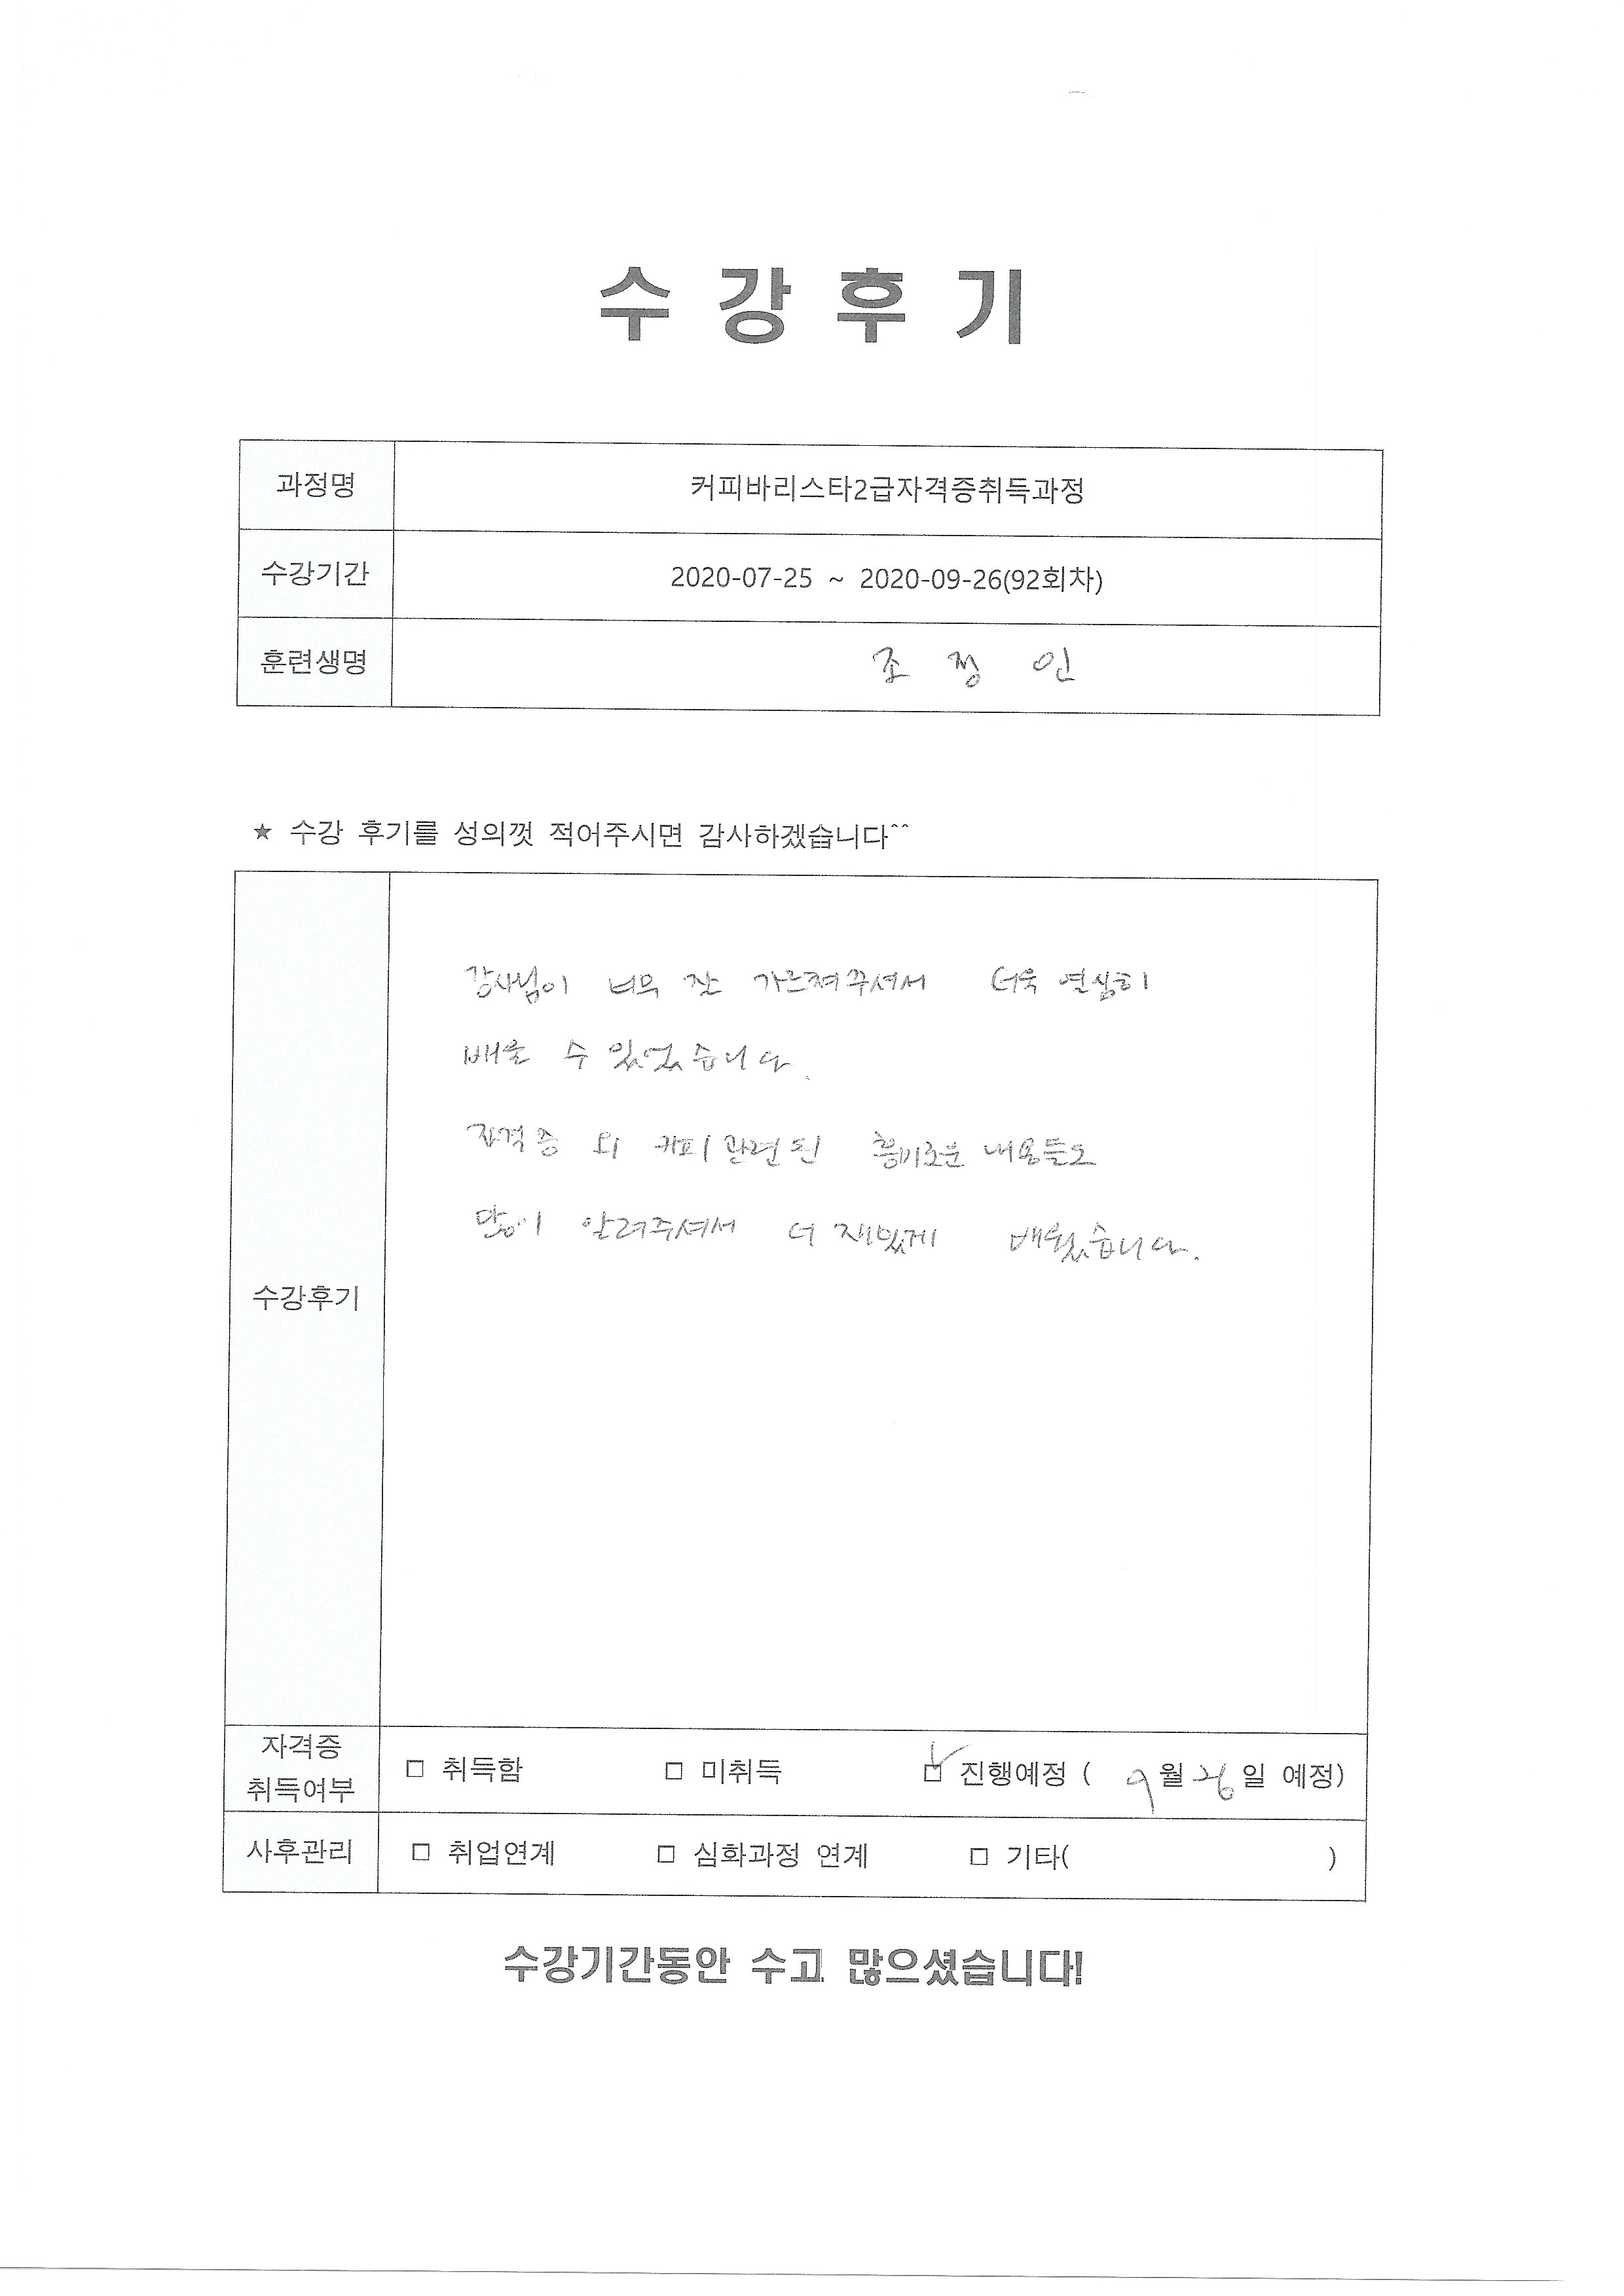 수 강 후 기
과정명 커피바리스타2급자격증취득과정
수강기간 2020-07-25 ~ 2020-09-26(92회차)
훈련생명 조 정 인
★ 수강 후기를 성의껏 적어주시면 감사하겠습니다^^
강사님이 너무 잘 가르쳐주셔서 더욱 열심히
배울 수 있었습니다.
자격증 외 커피관련된 흥미로운 내용들도
많이 알려주셔서 더 재밌게 배웠습니다.
수강후기
자격증
취득여부
□ 취득함 □ 미취득 □ 진행예정 ( 9월 26일 예정)
사후관리 □ 취업연계 □ 심화과정 연계 □ 기타( )
수강기간동안 수고 많으셨습니다!